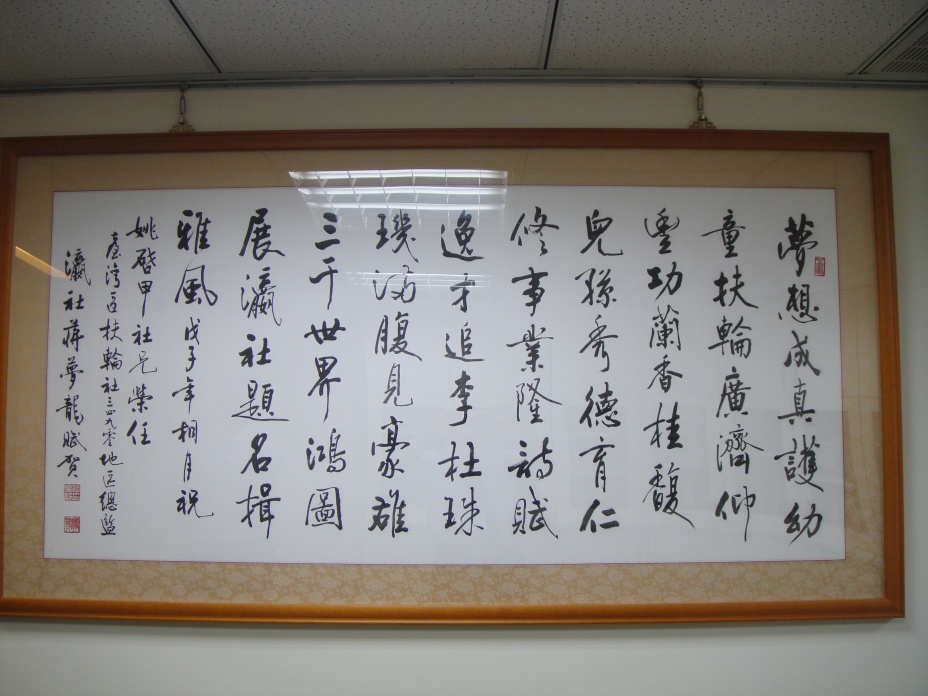 夢想成真護幼
童扶輪廣濟仰
豐功蘭香桂馥
兒孫秀德育仁
修事業隆詩賦
逸才追李杜珠
璣滿腹見豪雄
三千世界鴻圖
展瀛社題名揖
雅風戊子年桐月祝
姚啓甲社兄榮任
臺灣區扶輪社三四九零地區總監
瀛社蔣夢龍賦賀